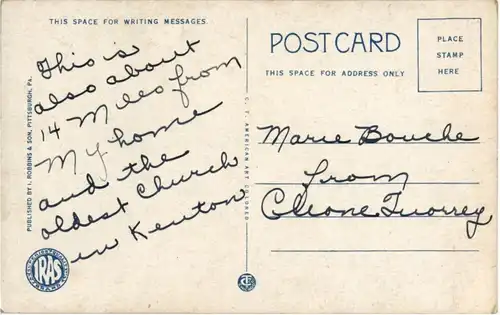 THIS SPACE FOR WRITING MESSAGES.
This is
also about
14 Miles from
My home
and the
oldest Church
in Kenton
PUBLISHED BY I. ROBBINS & SON, PITTSBURGH, PA.
IRAS
C. T. AMERICAN ART COLORED
POST CARD
THIS SPACE FOR ADDRESS ONLY
PLACE
STAMP
HERE
Marie Bouche
from
Cleone